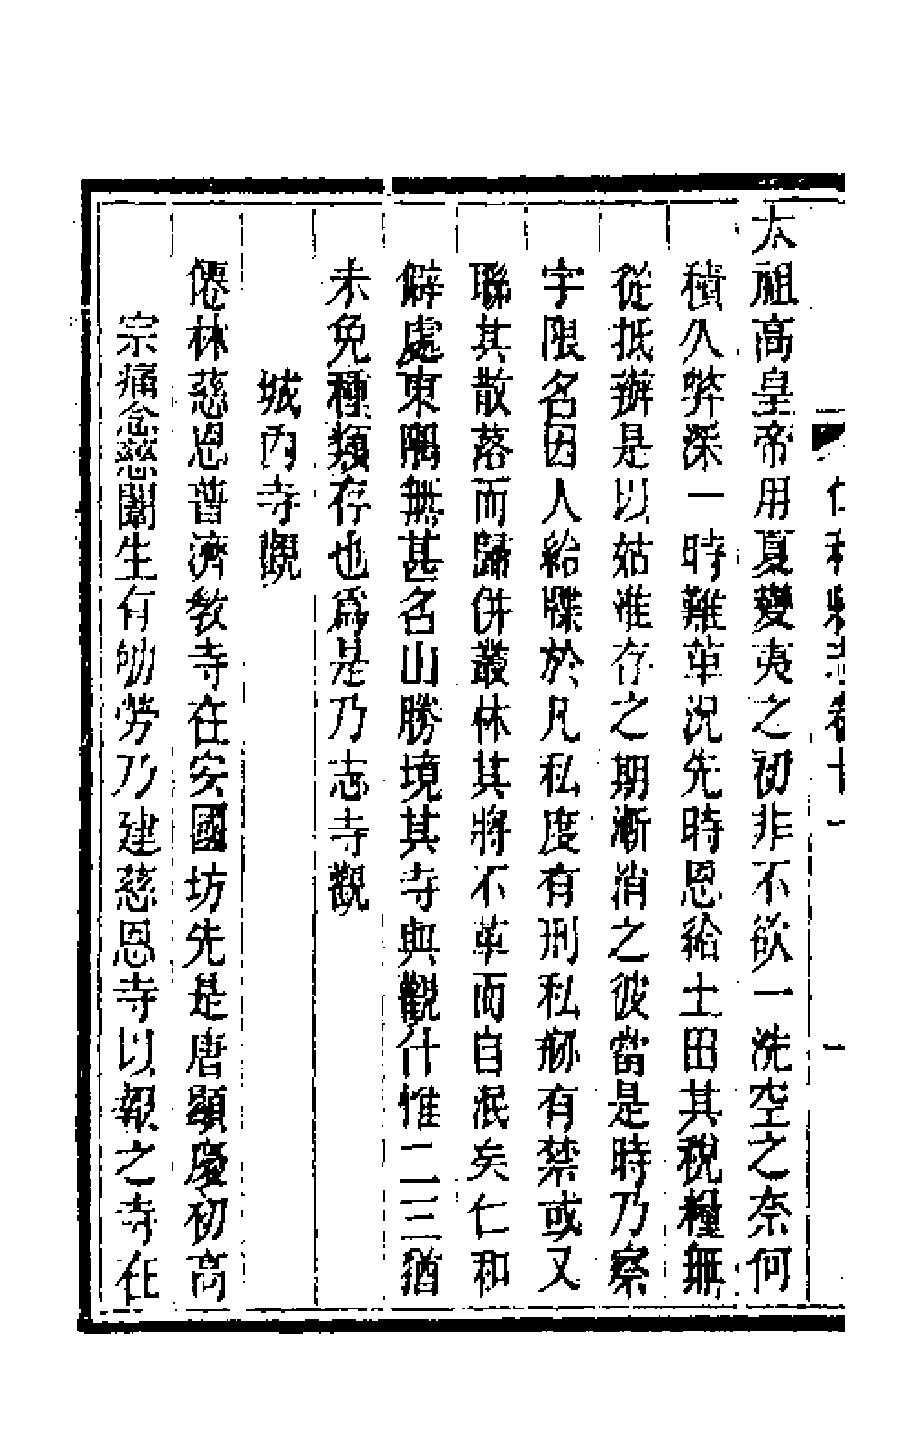 仁和縣志卷十一
一
太祖高皇帝用夏變夷之初非不欲一洗空之奈何
積久弊深一時難革況先時恩給土田其稅糧無
從抵辦是以姑惟存之期漸消之彼當是時乃察
字限名因人給牒於凡私度有刑私剏有禁或又
聯其散落而歸併叢林其將不革而自泯矣仁和
僻處東隅無甚名山勝境其寺與觀什惟二三猶
未免種類存也爲是乃志寺觀
城內寺觀
僊林慈恩普濟教寺在安國坊先是唐顯慶初高
宗痛念慈闈生有劬勞乃建慈恩寺以報之寺在